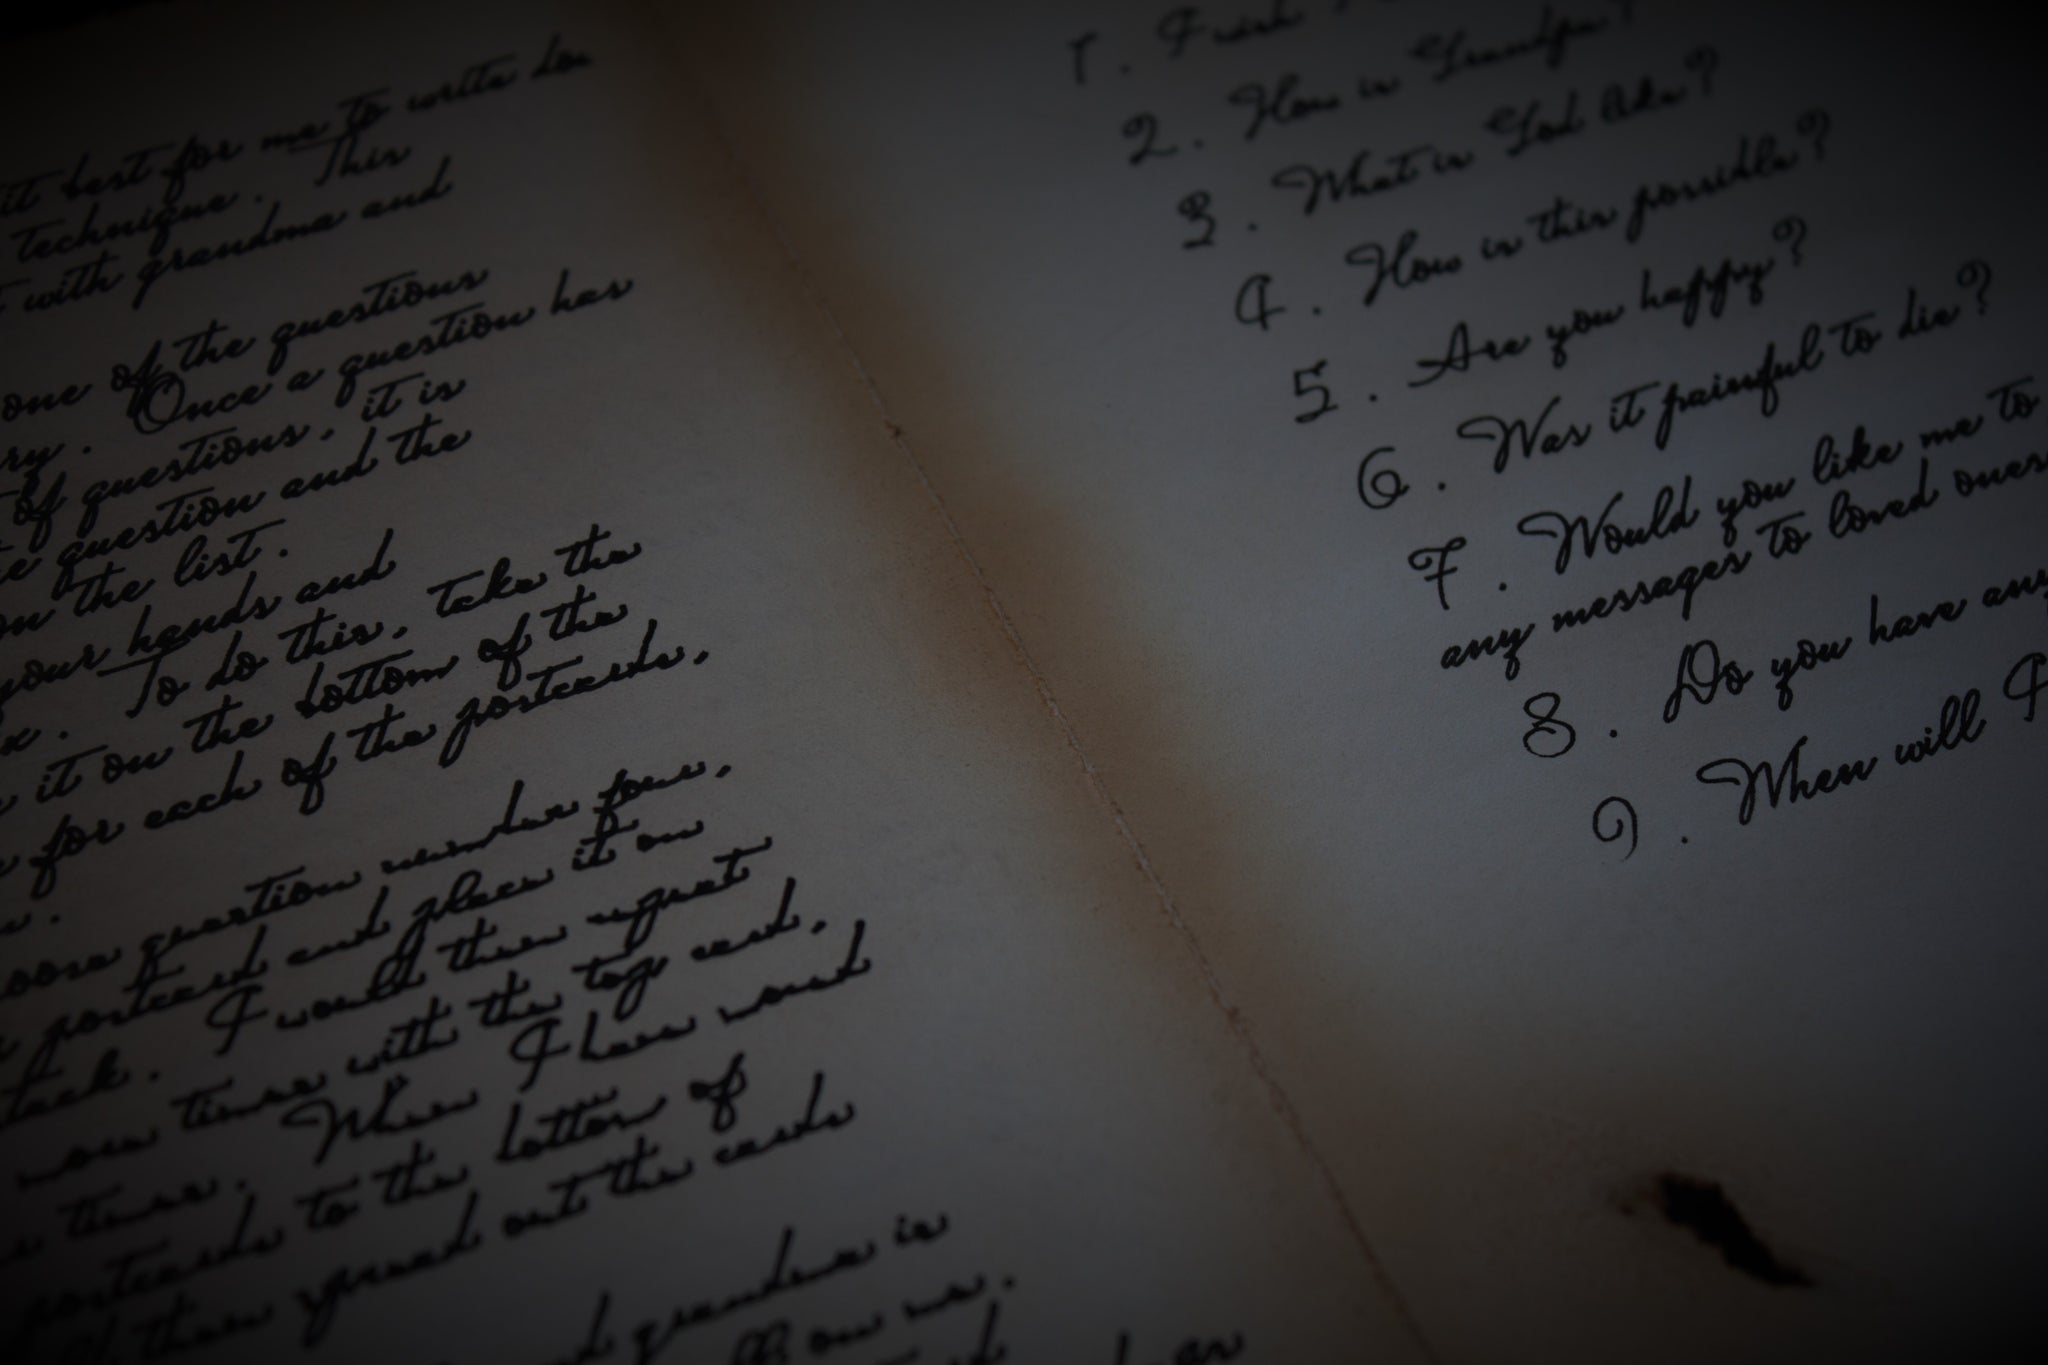 it best for me to write do
technique. This
with grandma and
one of the questions
ry. Once a question has
of questions, it is
e question and the
on the list.
your hands and
x. To do this, take the
it on the bottom of the
for each of the postcards,
question number four,
postcard and place it on
tack. I would then repeat
more times with the top card,
times. When I have moved
postcards to the bottom of
then spread out the cards
grandma is
me.
1.
2. How is Grandpa?
3. What is God like?
4. How is this possible?
5. Are you happy?
6. Was it painful to die?
7. Would you like me to
any messages to loved ones
8. Do you have any
9. When will I